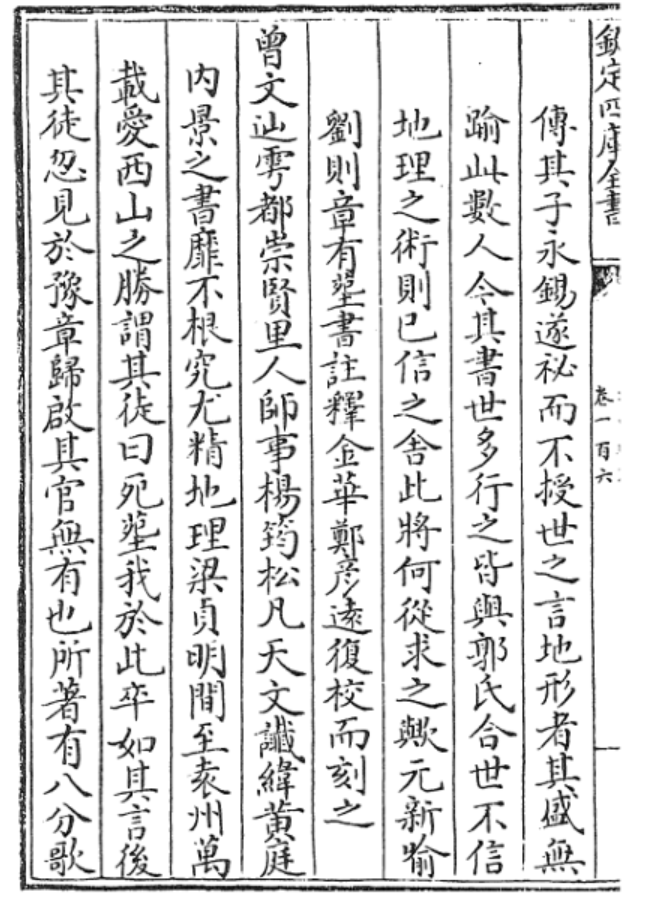 欽定四庫全書
卷一百六
傳其子永錫遂祕而不授世之言地形者其盛無
踰此數人今其書世多行之皆與郭氏合世不信
地理之術則已信之舍此將何從求之歟元新喻
劉則章有塟書註釋金華鄭彦逺復校而刻之
曾文辿雩都崇賢里人師事楊筠松凡天文讖緯黄庭
内景之書靡不根究尤精地理梁貞明間至袁州萬
載愛西山之勝謂其徒曰死塟我於此卒如其言後
其徒忽見於豫章歸啟其官無有也所著有八分歌